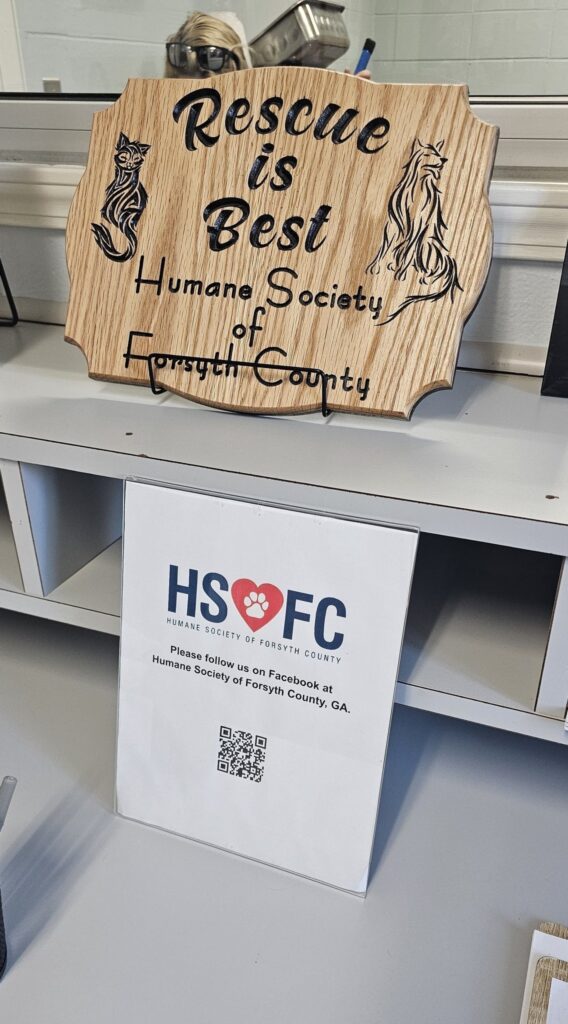 Rescue
is
Best
Humane Society
of
Forsyth County
HS FC
HUMANE SOCIETY OF FORSYTH COUNTY
Please follow us on Facebook at
Humane Society of Forsyth County, GA.